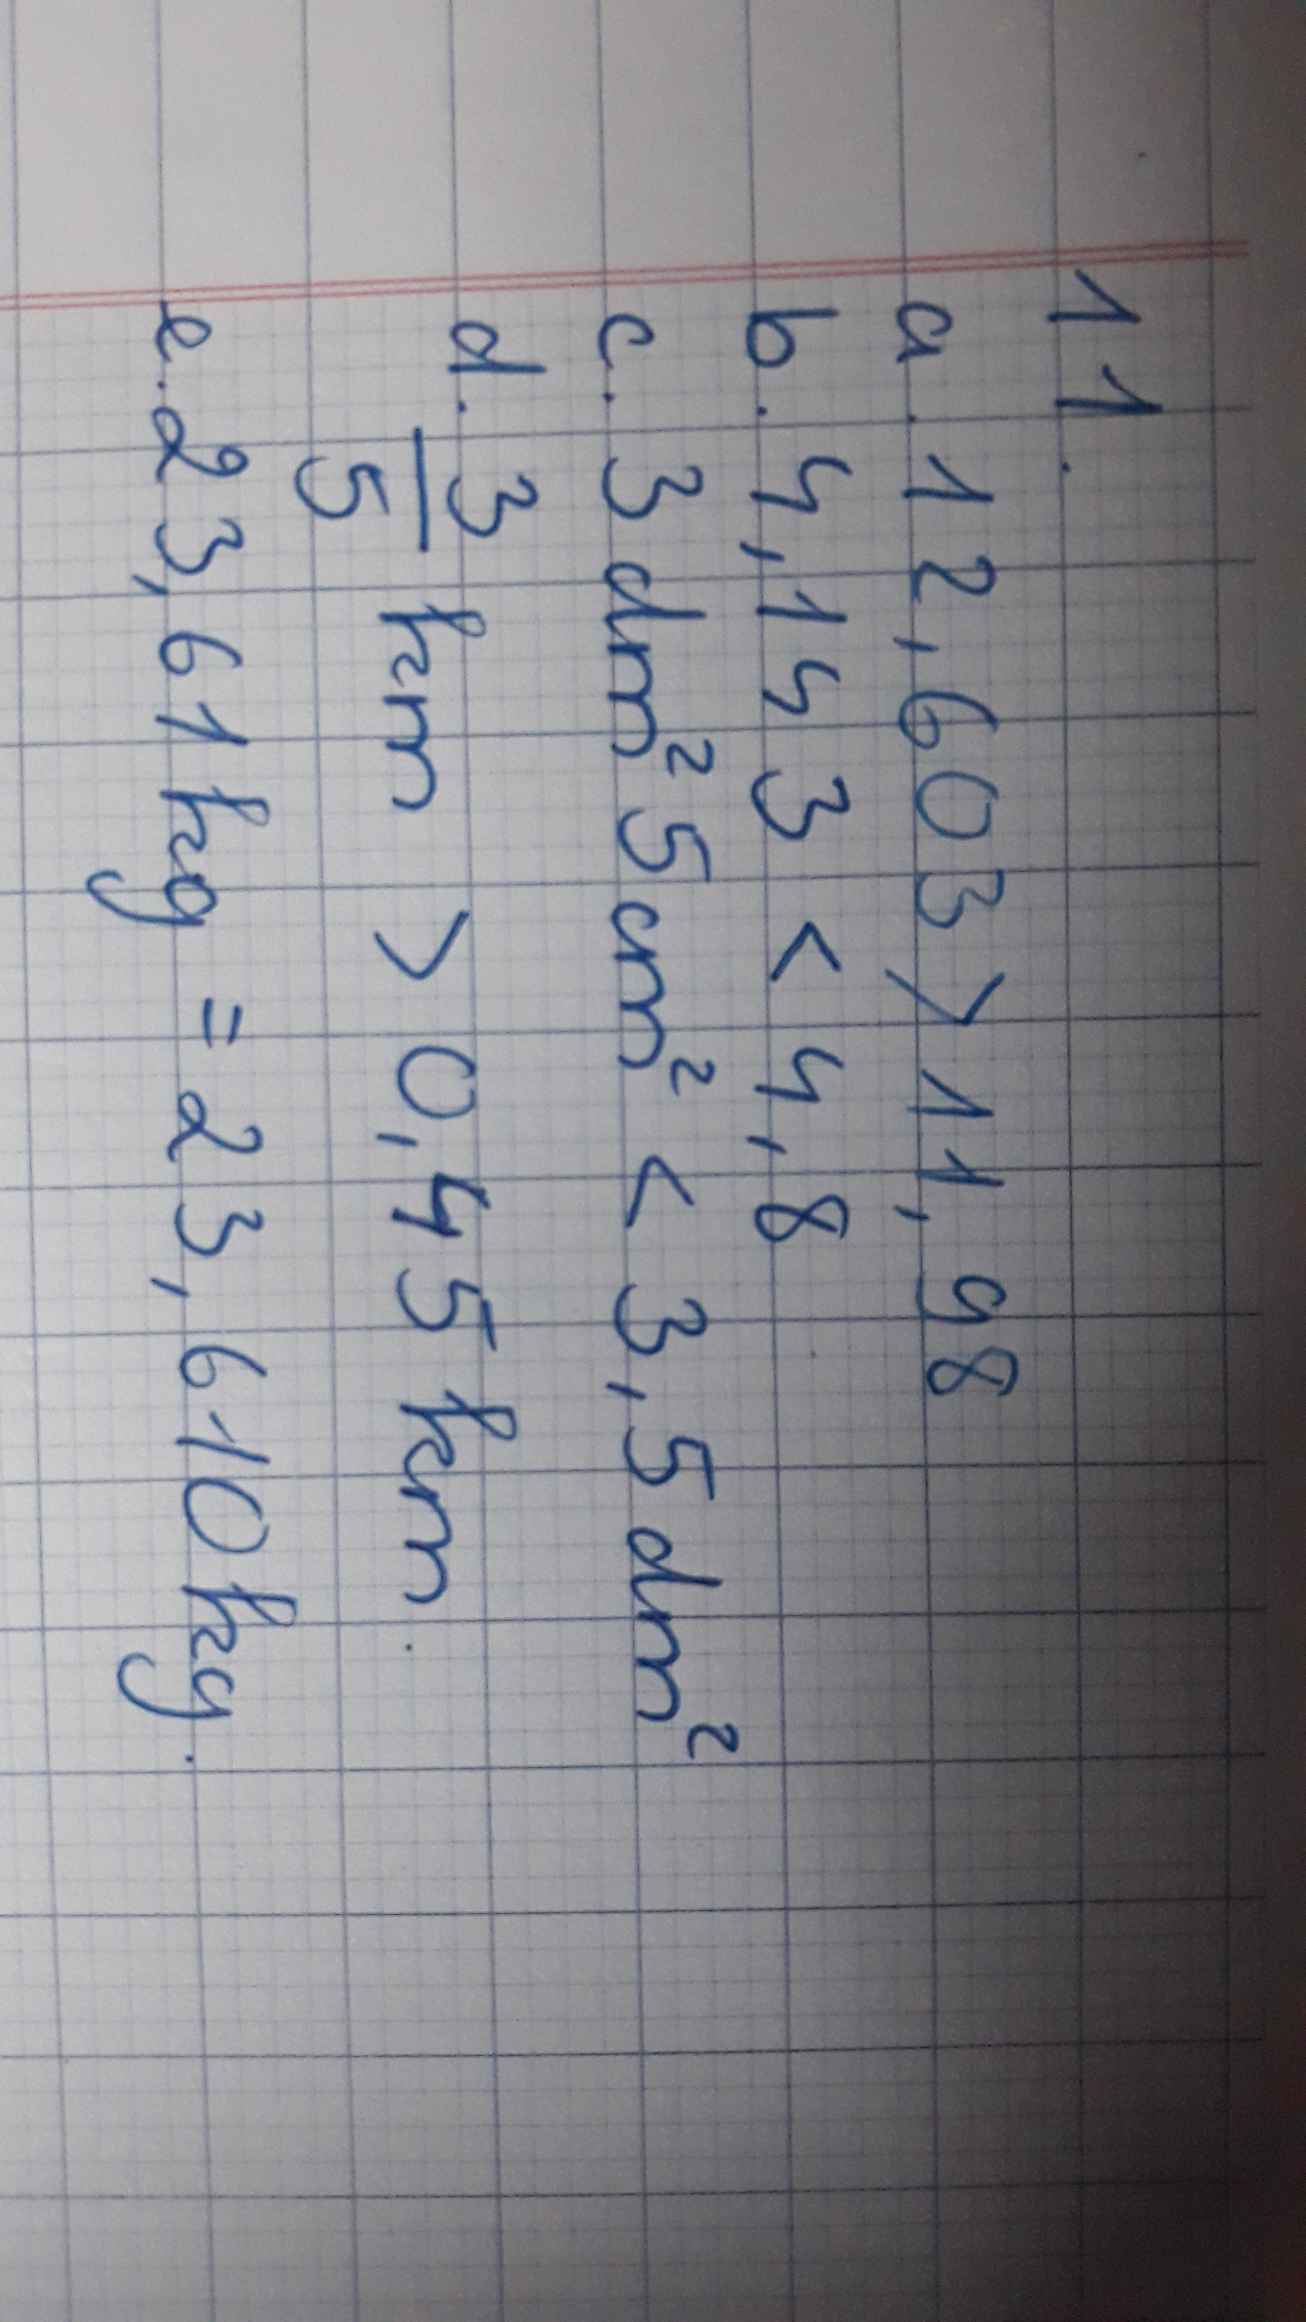 11.
a. 12,603 > 11,98
b. 4,143 < 4,8
c. 3 dm² 5 cm² < 3,5 dm²
d. 3/5 km > 0,45 km.
e. 23,61 kg = 23,610 kg.